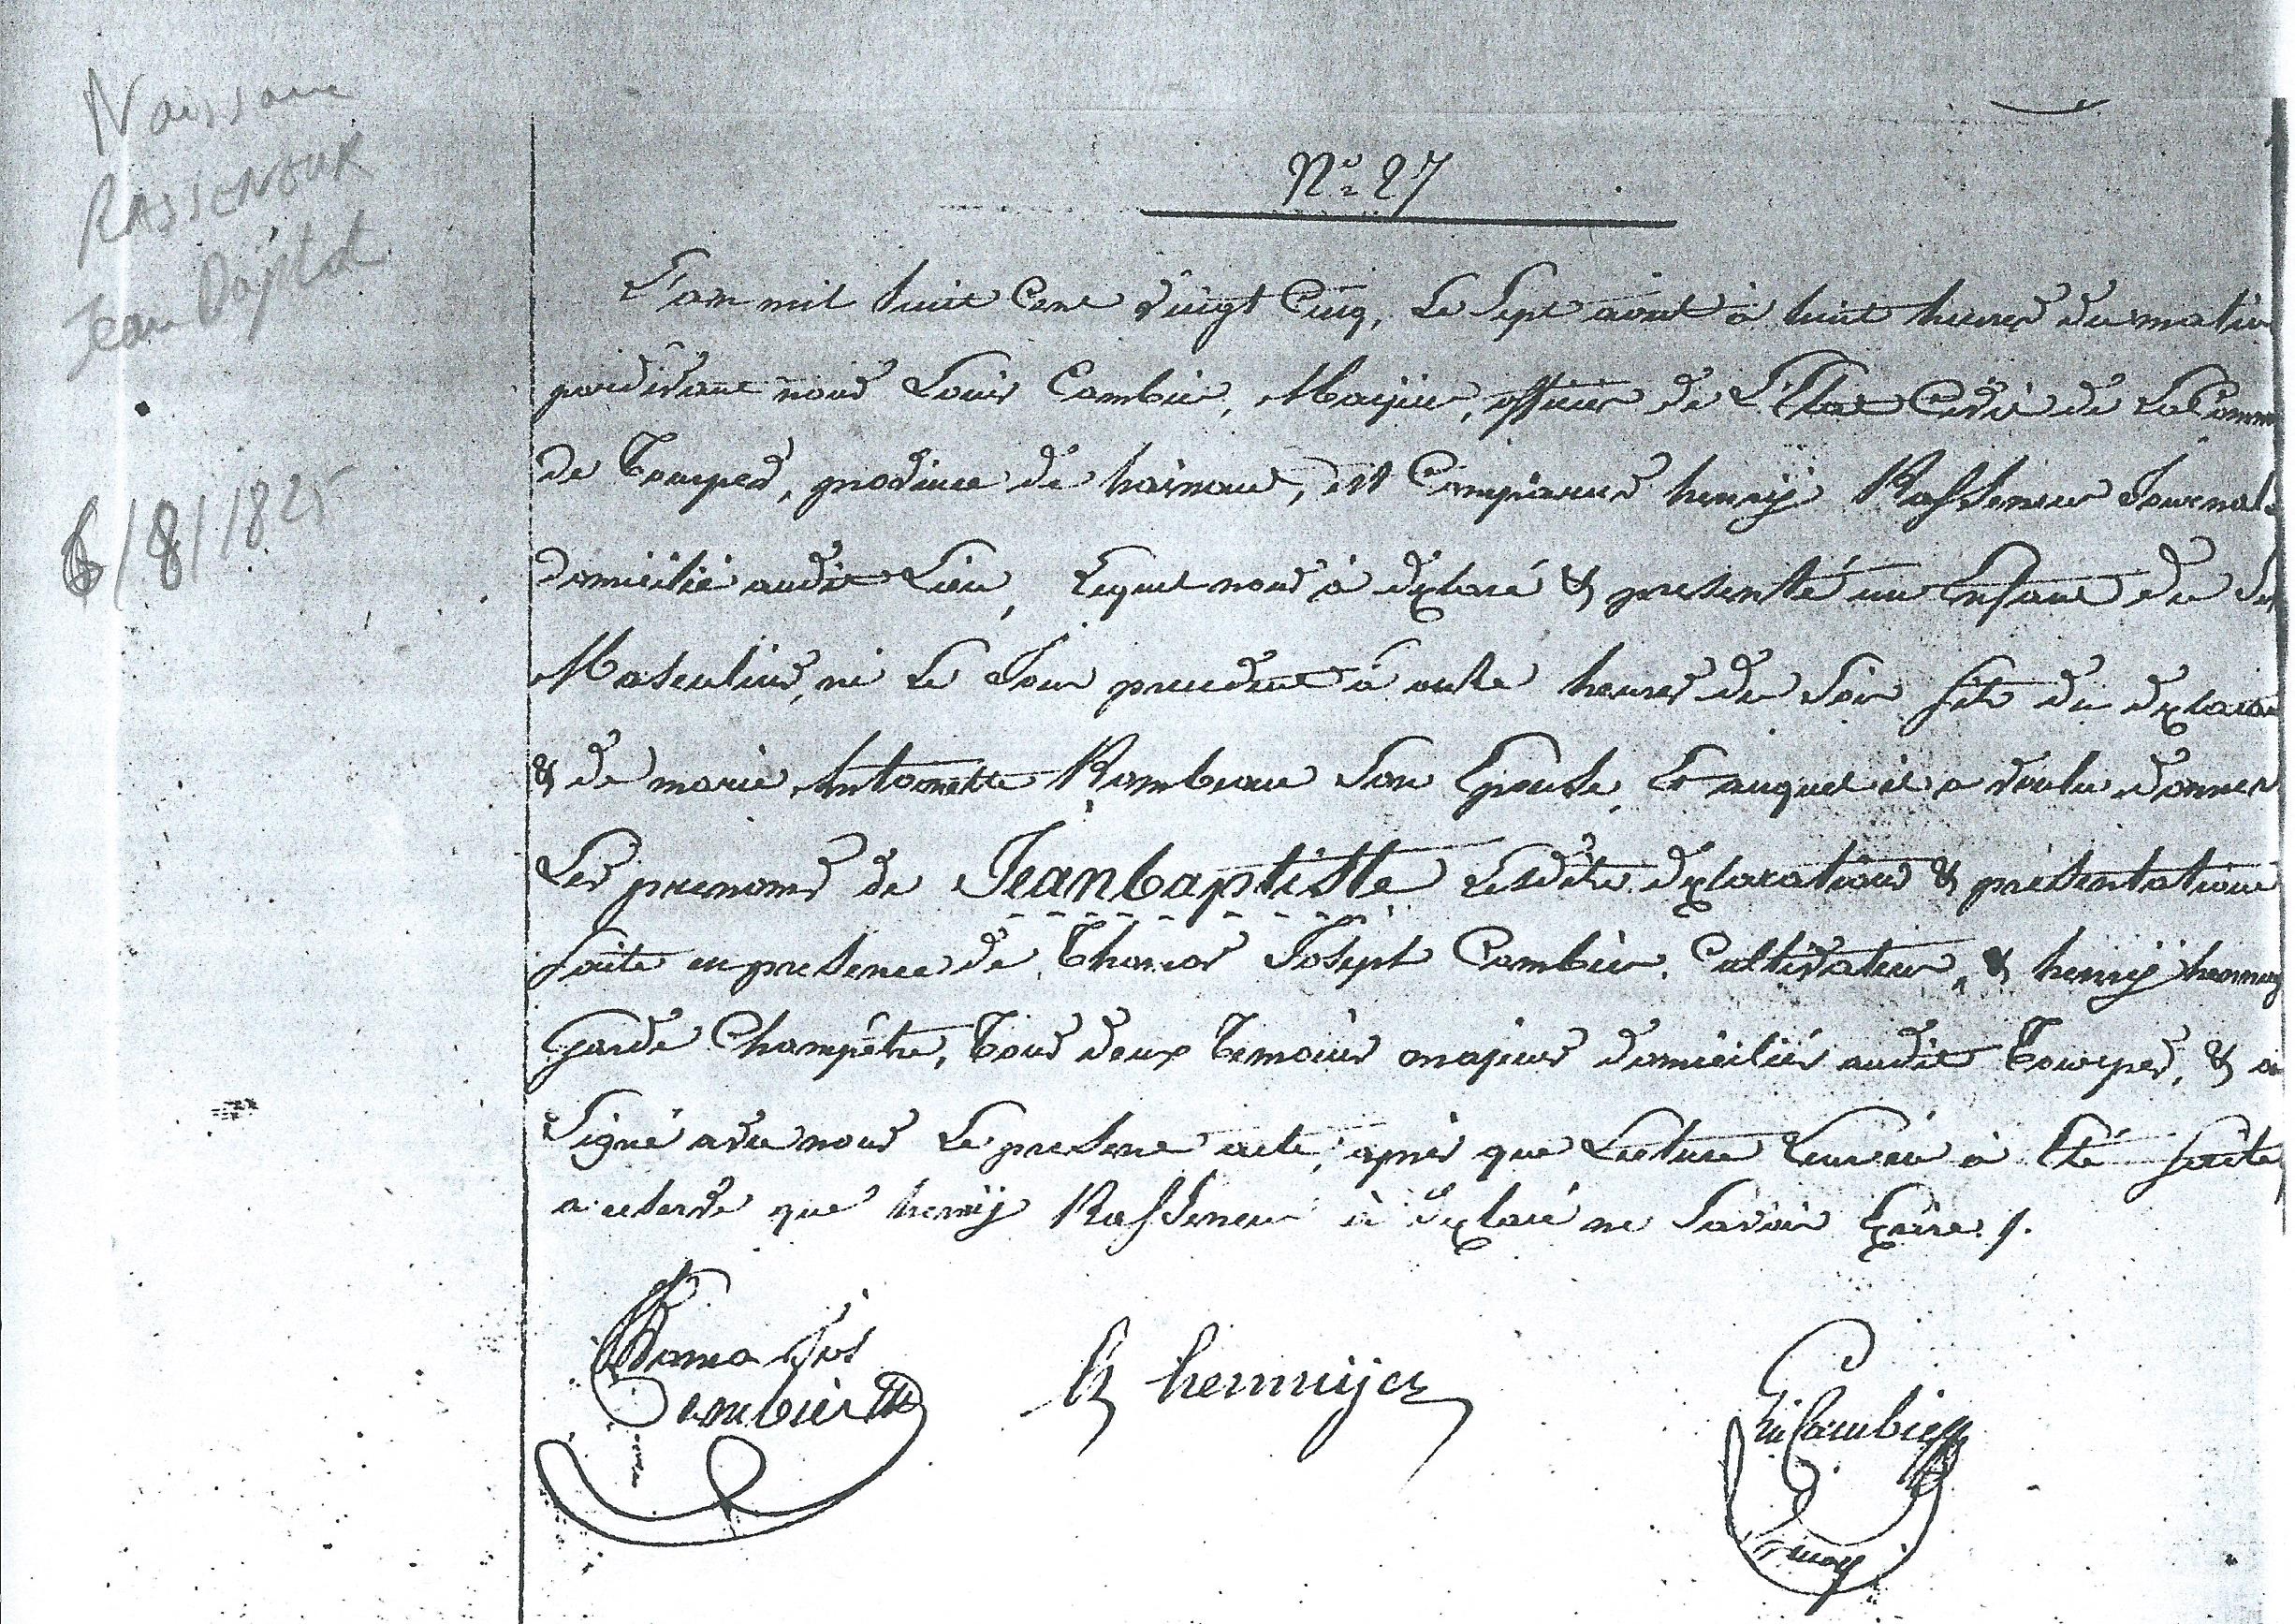 Naissance
RASSENEUR
Jean Baptist
6/8/1825
No. 27
L'an mil huit Cent vingt Cinq, Le Sept aout à huit heures du matin
pardevant nous Louis Cambier, Mayeur, officier de L'Etat Civil de La Comm
de Tourpes, province de hainaut, est Comparu henrij Rasseneur Journal
domicilié audit Lieu, Lequel nous à declaré & presenté un Enfant du Se
Masculin, né Le Jour precedent à onze heures du Soir fils du declara
& de marie Antoinette Rombeau Son Epouse, Et auquel il a voulu donner
Les prenoms de Jeanbaptiste Lesdites declaration & présentation
faite en presence de Thomas Joseph Cambier, Cultivateur, & henrij
garde Champêtre, Tous deux Temoins majeurs domiciliés audit Tourpes, & a
Signé avec nous Le present acte, après que Lecture Leur en à Eté faite
a reserve que henrij Rasseneur à declaré ne Savoir Ecrire /.
Thomas Jos
Cambier
h hennuijez
Cambier
may